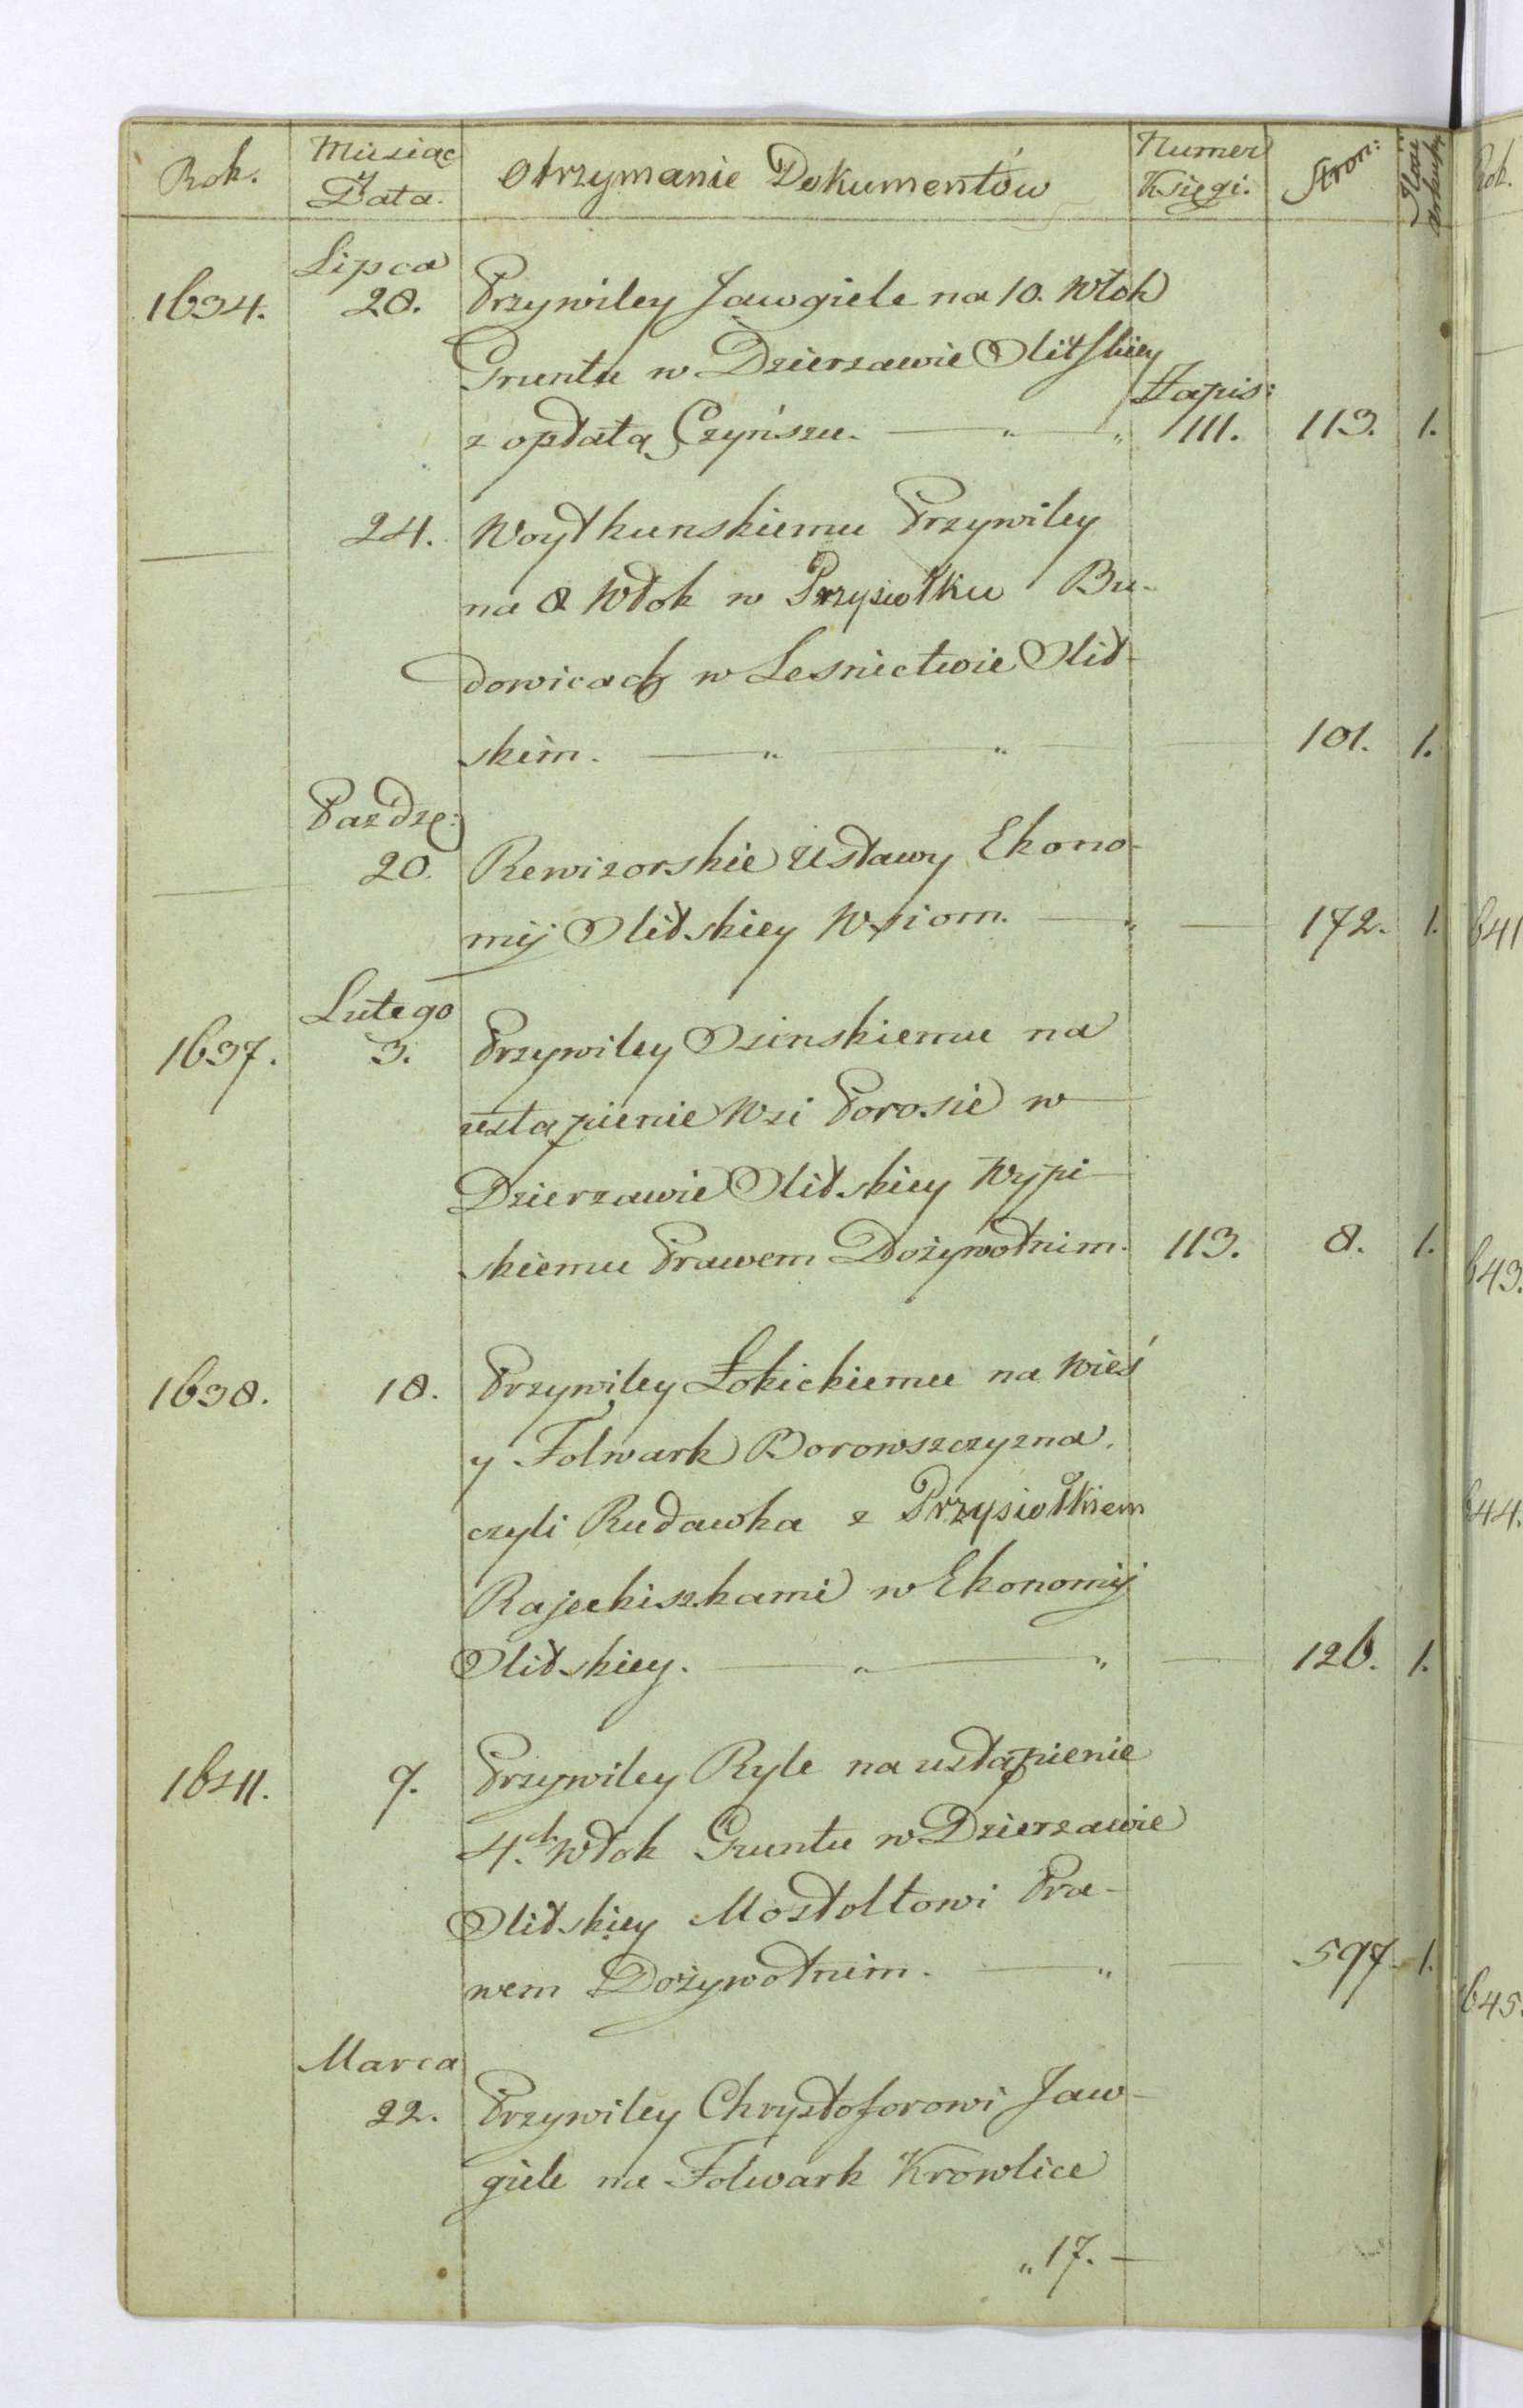 Rok. Miesiąc Otrzymanie Dokumentów Numer Stron: Ilość
y Data. Księgi. arkuszy
Lipca
1634. 28. Przywiley Jawgiele na 10. Włok
Gruntu w Dzierzawie Olitskiey
z opłatą Czyńszu. — „ — „ Zapis: 111. 113. 1.
— 24. Woytkunskiemu Przywiley
na 8 Włok w Przysiołku Bu-
dowicach w Lesnictwie Olit-
skim. — „ — „ — 101. 1.
Pazdze:
— 20. Rewizorskie Ustawy Ekono-
mij Olitskiey Wsiom. — „ — 172. 1.
Lutego
1637. 3. Przywiley Osinskiemu na
ustąpienie Wsi Porosie w
Dzierzawie Olitskiey Wypi-
skiemu Prawem Dożywotnim. 113. 8. 1.
1638. 18. Przywiley Łokickiemu na Wieś
y Folwark Borowszczyzna.
czyli Rudawka z Przysiołkiem
Rajeckiszkami w Ekonomij
Olitskiey. — „ — „ — 126. 1.
1641. 7. Przywiley Ryle na ustąpienie
4.ch Włok Gruntu w Dzierzawie
Olitskiey Mostołtowi Pra-
wem Dożywotnim. — „ — 597. 1.
Marca
22. Przywiley Chrystoforowi Jaw-
giele na Folwark Krowlice
„ 17. —
Rok.
641
643.
644.
645.